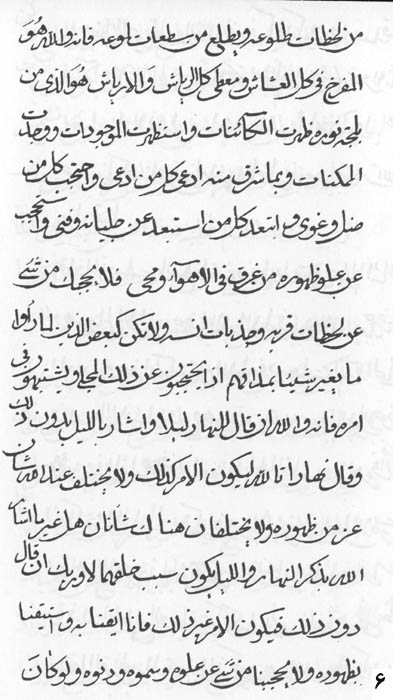 من لحظات طلوعه ويطلع من سطعات لوعه فانه والله هو
المفرج في كل العشائر ومعطي كل الرياش والارياش هو الذي من
بلجة نوره ظهرت الكائنات واستظهرت الموجودات ووجدت
الممكنات وبما شرق منه ادعى كل من ادعى واحتجب كل من
ضل وغوى وابتعد كل من استبعد عن وفنى واستحجب
عن علو ظهوره من غرق في الاهوآء ومحى فلا يحجبك من شيء
عن لحظات قربه وجذبات انسه ولا تكن كبعض الذين لما رأوا
ما يغير شيئا بمذاقهم اذا يحتجبون عن ذلك المجلي ويشتبهون في
امره فانه والله ان قال للنهار ليلا واشار بالليل بدون ذلك
وقال نهارا تالله ليكون الامر كذلك ولا يختلف عند الله شأن
عز من ظهوره ولا يختلفان هنالك شأنان هل غير ما اشاء
الله بذكر النهار والليل يكون سبب خلقهما لا وربك ان قال
دون ذلك فيكون الامر غير ذلك فانا ايقنا به واستيقنا
بظهوره ولا يحجبنا من شيء عن علوه وسموه ودنوه ولو كان
۶